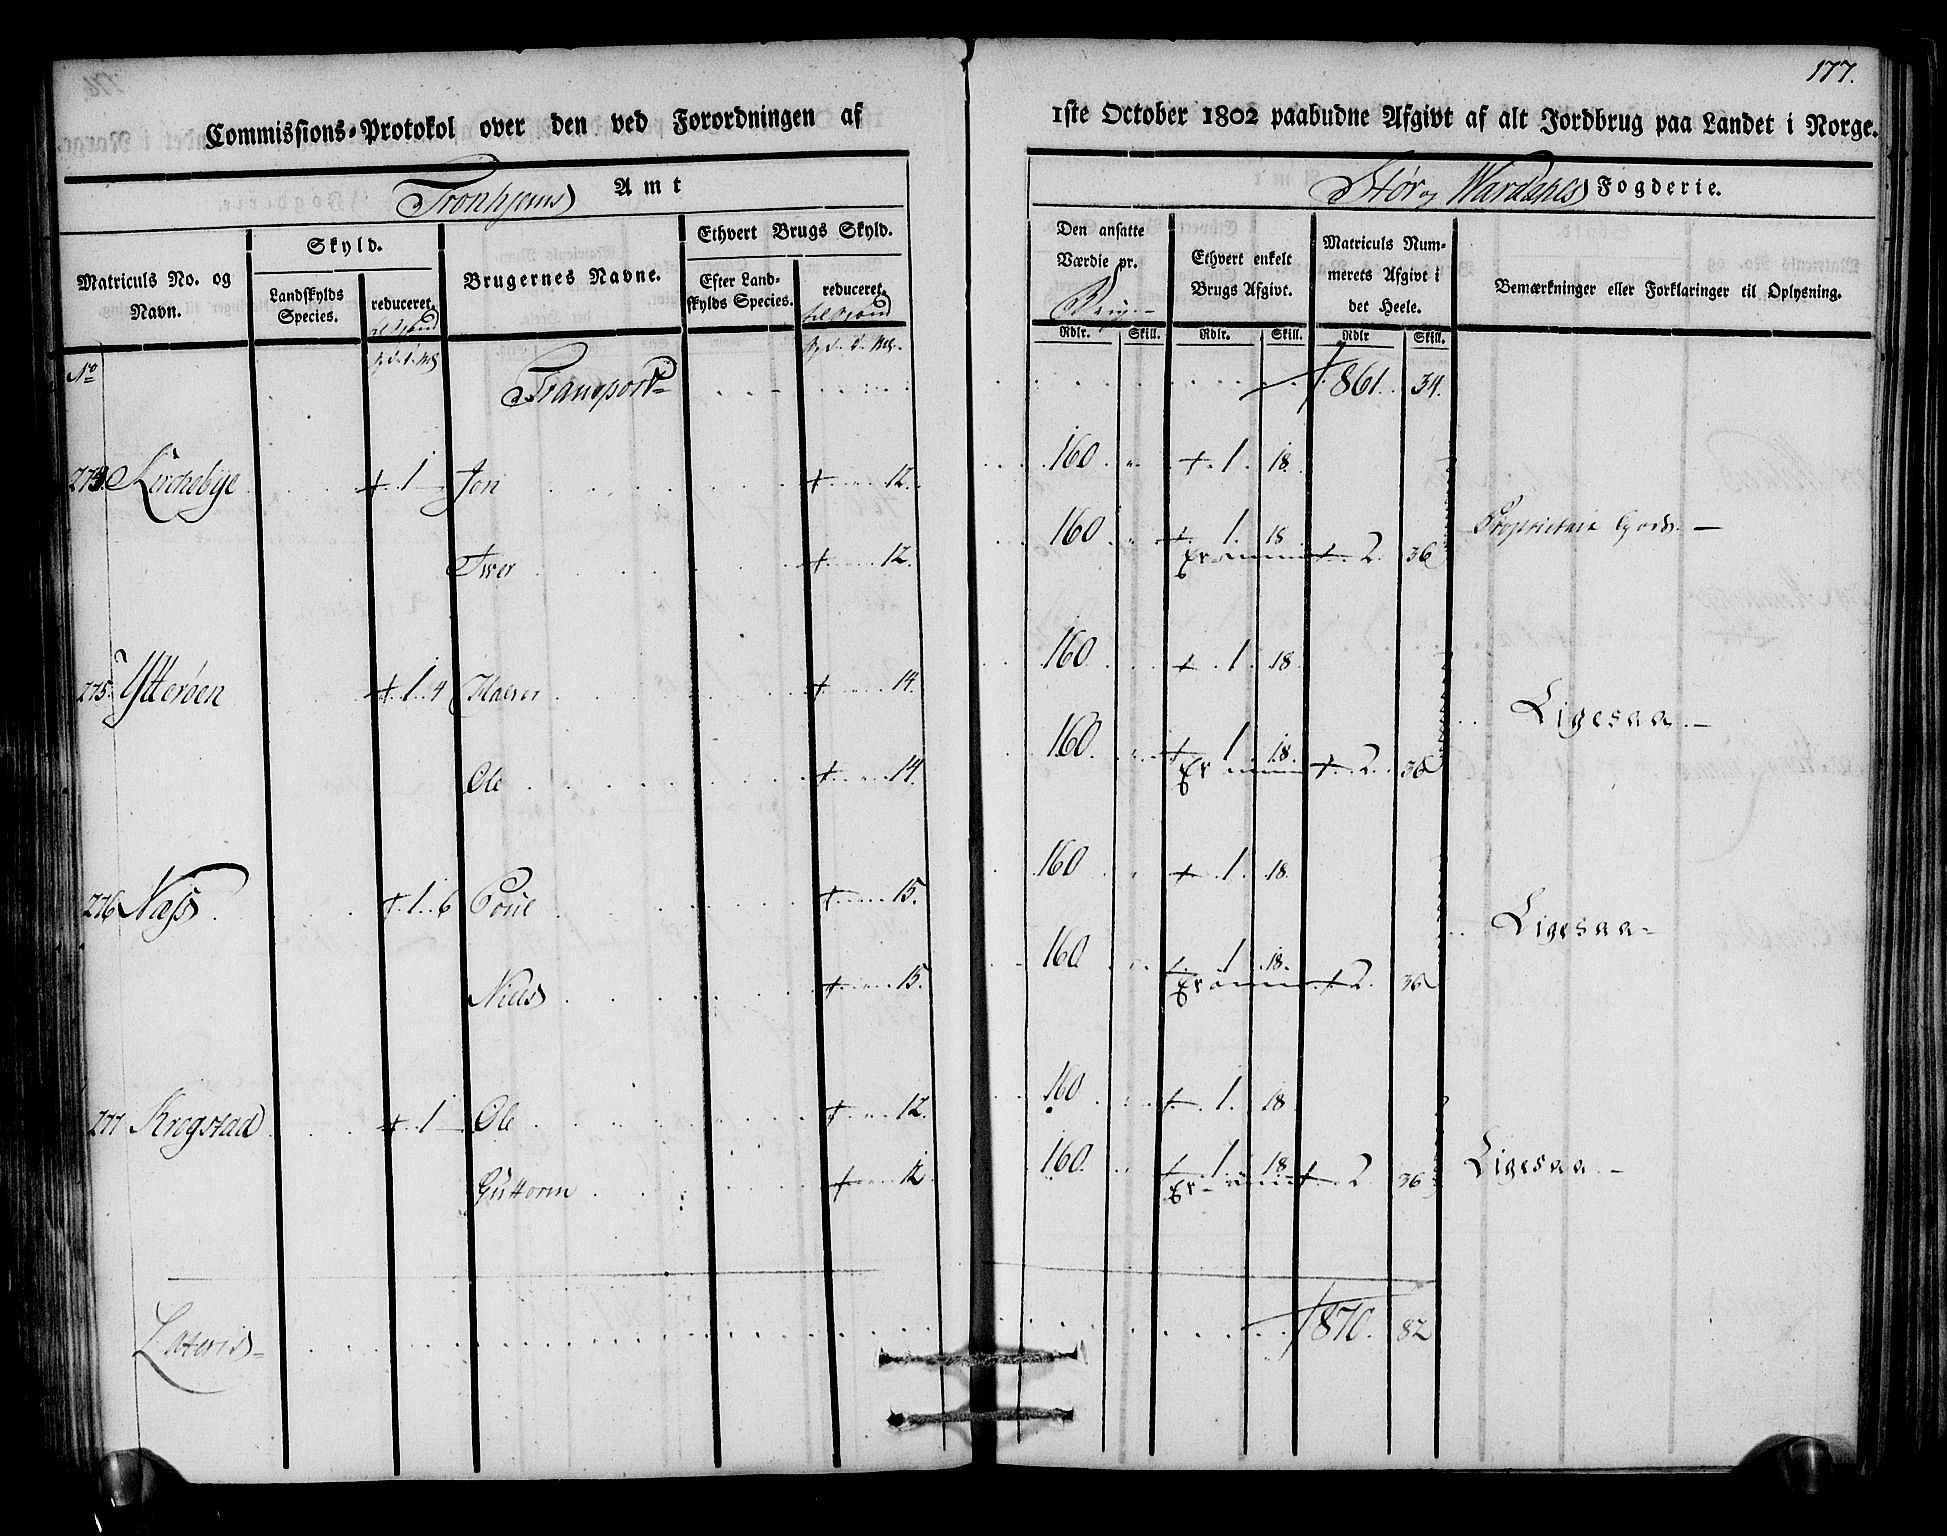 177.
Commissions-Protokol over den ved Forordningen af 1ste October 1802 paabudne Afgivt af alt Jordbrug paa Landet i Norge.
Tronhjems Amt
Stør og Wardahls Fogderie.
Matriculs No. og Navn.
Skyld.
Landskylds Species.
reduceret.
Brugernes Navne.
Ethvert Brugs Skyld.
Efter Landskylds Species.
reduceret.
Den ansatte Værdie pr.
Rdlr. Skill.
Ethvert enkelt Brugs Afgivt.
Rdlr. Skill.
Matriculs Nummerets Afgivt i det Heele.
Rdlr Skill.
Bemærkninger eller Forklaringer til Oplysning.
No
Transport 861. 34.
Kirchebÿe 1 Jon 12. 160 1. 18.
Iver 12. 160 1. 18 2. 36 Proprietair Gods.
275. Ytterøen 1. 4 14. 160 1. 18
Ole 14. 160 1. 18. 2. 36 Ligesaa.
276 Næss 1. 6 15. 160 1. 18.
Niels 15. 160 1. 18. 2. 36 Ligesaa
277 Krogstad 1 Ole 12. 160 1. 18
Guttorm 12 160. 1. 18 2 36 Ligesaa
Lateris 870. 82